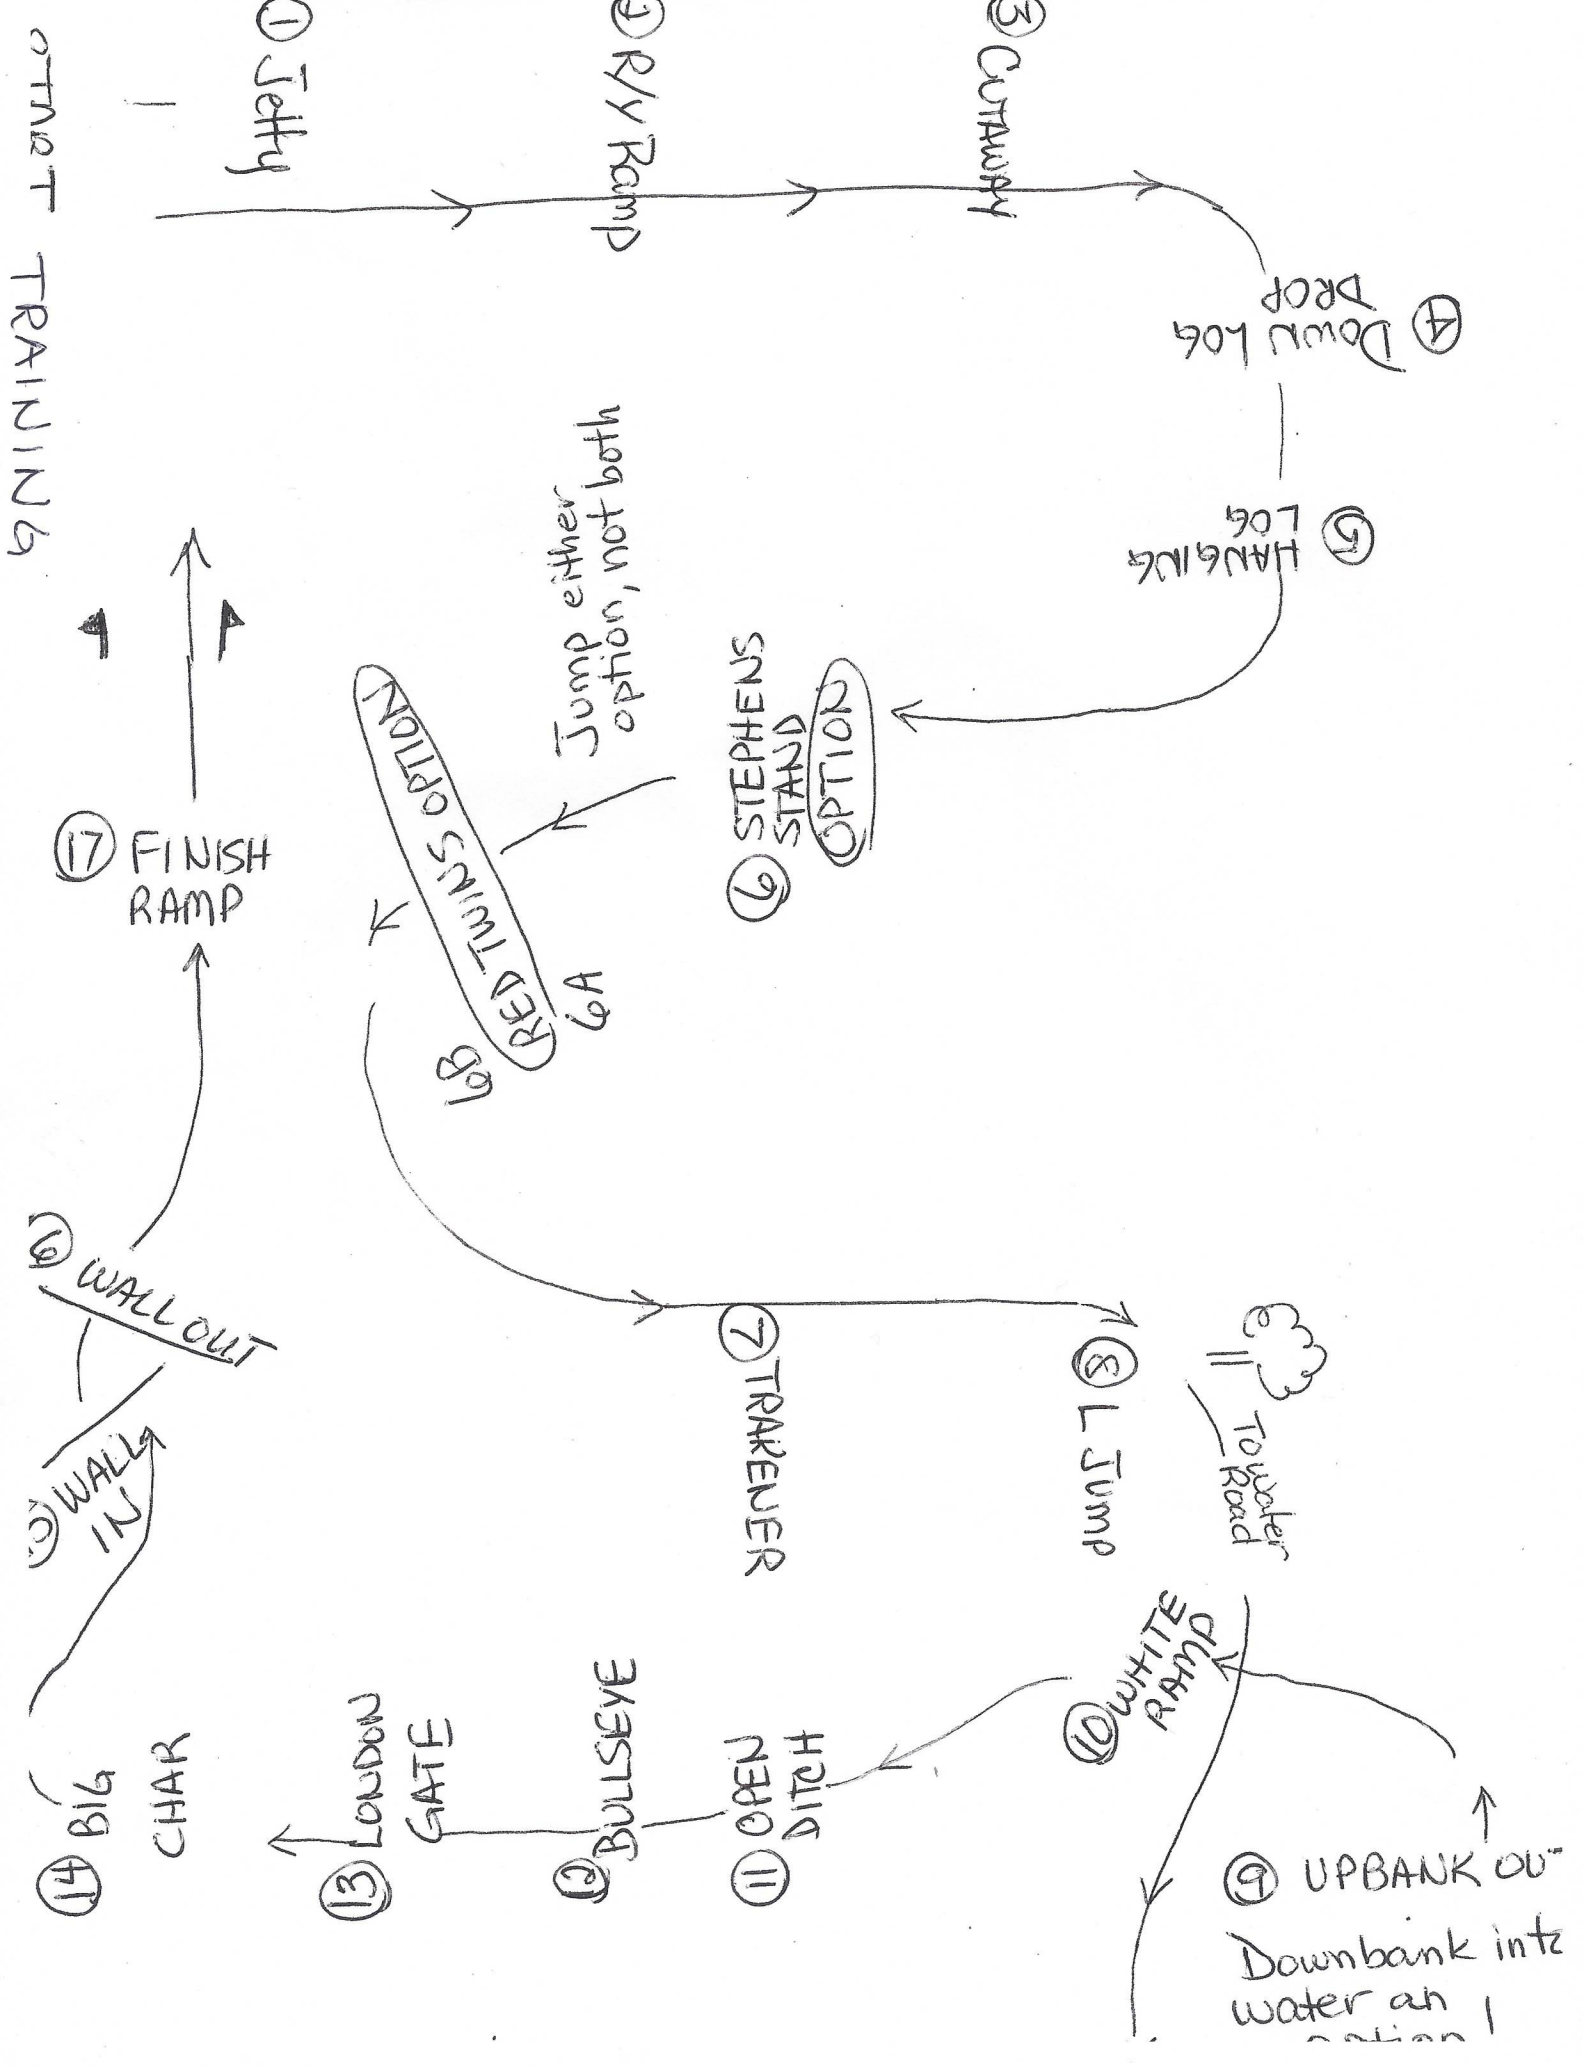 START TRAINING
① Jetty
② R/y Ramp
③ CUTAWAY
④ DOWN LOG
DROP
⑤ HANGING
LOG
⑥ STEPHENS
STAND
OPTION
Jump either
option, not both
RED TWINS OPTION
6A
6B
⑦ TRAKENER
⑧ L Jump
To water
Road
⑨ UPBANK OU
Downbank into
water an
option
⑩ WHITE
RAMP
⑪ OPEN
DITCH
⑫ BULLSEYE
⑬ LONDON
GATE
⑭ BIG
CHAR
WALL
IN
6 WALL OUT
⑰ FINISH
RAMP